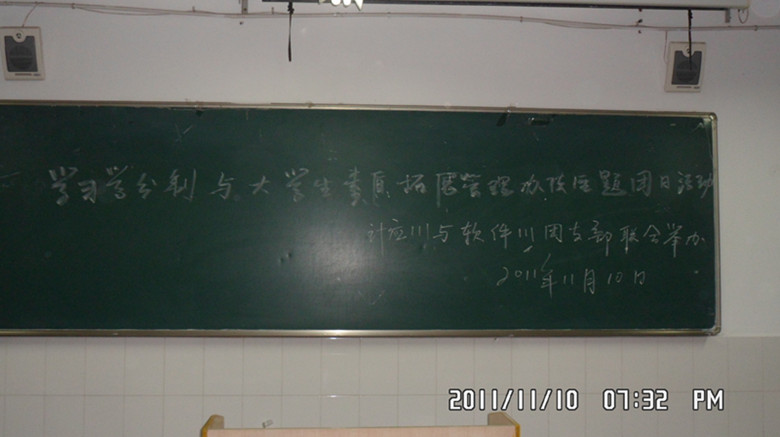 学习学分制与大学生素质拓展管理办法主题团日活动
计应111与软件111团支部联合举办
2011年11月10日
2011/11/10 07:32 PM